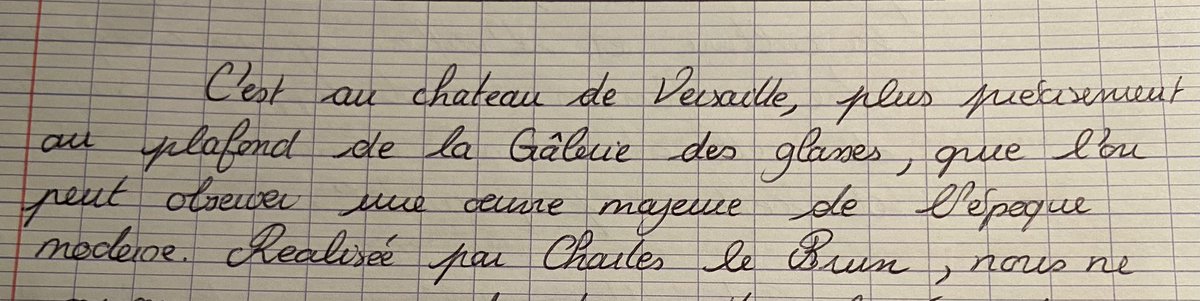 C'est au chateau de Versaille, plus précisement
au plafond de la Gâlerie des glaces, que l'on
peut observer une oeuvre majeure de l'époque
moderne. Realisée par Charles le Brun, nous ne